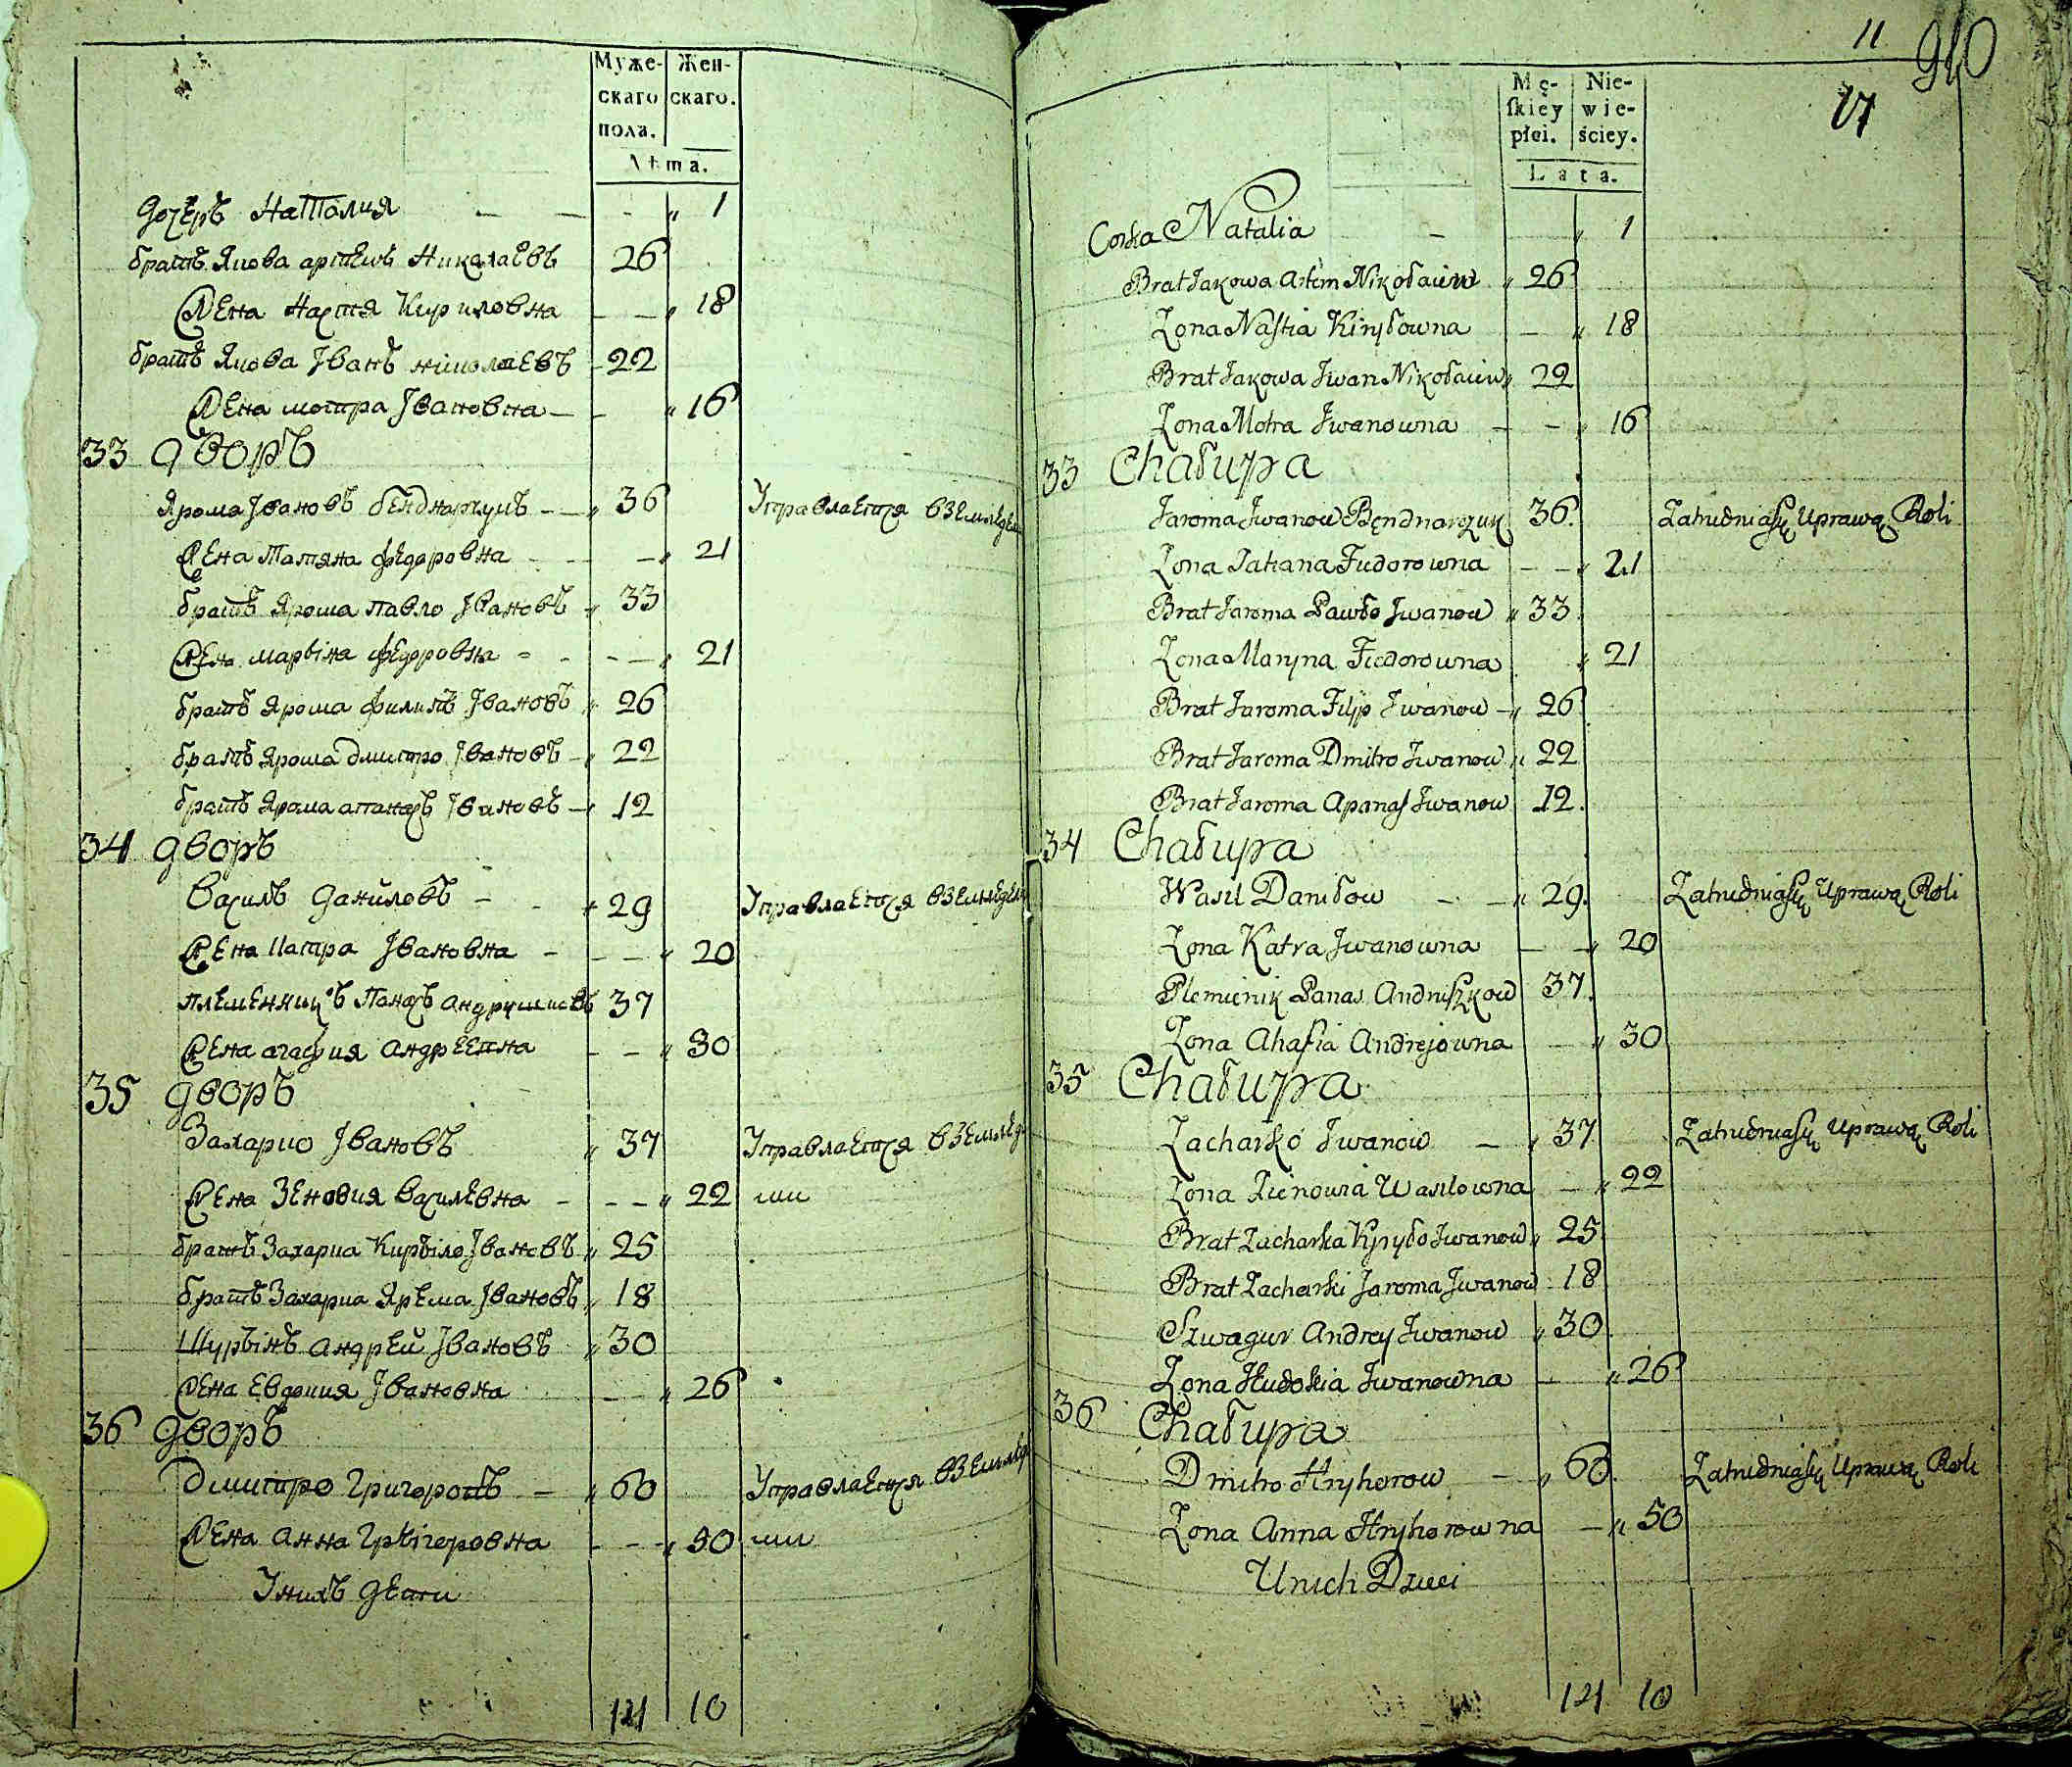 Муже- Жен-
скаго скаго.
пола.
Лѣта.
дочеръ Наталия — — - „ 1
братъ Якова артемъ Николаевъ 26
Жена Настя Кириловна — — „ 18
братъ Якова Iванъ николаевъ - 22
Жена мотра Iвановна — - „ 16
33 дворъ
Ярома Iвановъ бенднарчукъ - — „ 36 Управлается вземлед
Жена Татяна федоровна - - — „ 21
братъ Ярома павло Iвановъ „ 33
Жена марвiна федоровна - - - — „ 21
братъ Ярома филипъ Iвановъ „ 26
братъ Ярома дмитро Iвановъ - „ 22
братъ Ярома апанасъ Iвановъ — „ 12
34 дворъ
Василь даниловъ - - „ 29 Управлается вземлед
Жена Катра Iвановна - - — „ 20
племенникъ Панасъ андрушковъ 37
Жена агафия андреевна - — „ 30
35 дворъ
Захарко Iвановъ „ 37 Управлается вземлед
Жена Зеновия василевна - - — „ 22
братъ Захарка Кирѣло Iвановъ „ 25
братъ Захарка Ярема Iвановъ „ 18
Шурѣнъ андрей Iвановъ „ 30
Жена Евдокия Iвановна — „ 26
36 дворъ
Дмитро Григоровъ — „ 60 Управлается вземлед
Жена анна Грѣгоровна - - - „ 50
Унихъ дети
121 10
11 940
17
Mę- Nie-
ſkiey wie-
płci. ściey.
Lata.
Corka Natalia — — „ 1
Brat Jakowa Artem Nikołaiew „ 26
Zona Nastia Kiryłowna — „ 18
Brat Jakowa Jwan Nikołaiew „ 22
Zona Motra Jwanowna — - „ 16
33 Chałupa
Jaroma Jwanow Bęndnarczuk 36. Zatrudnia się Uprawą Roli
Zona Tatiana Fiudorowna — - „ 21
Brat Jaroma Pawło Jwanow „ 33
Zona Maryna Fiedorowna „ 21
Brat Jaroma Filip Jwanow — „ 26
Brat Jaroma Dmitro Jwanow „ 22
Brat Jaroma Apanas Jwanow 12.
34 Chałupa
Wasil Daniłow — - „ 29. Zatrudnia się Uprawą Roli
Zona Katra Jwanowna — - „ 20
Plemienik Panas Andruszkow 37.
Zona Ahafia Andrejowna — „ 30
35 Chałupa
Zacharko Jwanow — „ 37 Zatrudnia się Uprawą Roli
Zona Zienowia Wasilowna — „ 22
Brat Zacharka Kyryło Jwanow „ 25
Brat Zacharki Jaroma Jwanow 18
Szwagur Andrey Jwanow „ 30
Zona Hudokia Jwanowna — „ 26
36 Chałupa
Dmitro Hryhorow — „ 60 Zatrudnia się Uprawą Roli
Zona Anna Hryhorowna — „ 50
Unich Dzieci
121 10